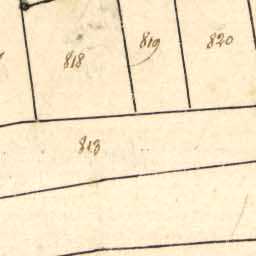 818 819 820
813